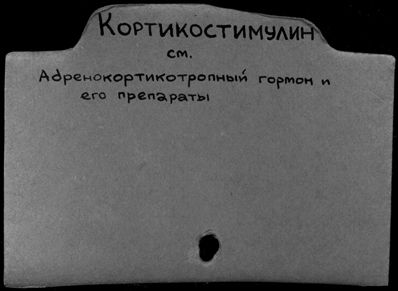 Кортикостимулин
см.
Адренокортикотропный гормон и
его препараты